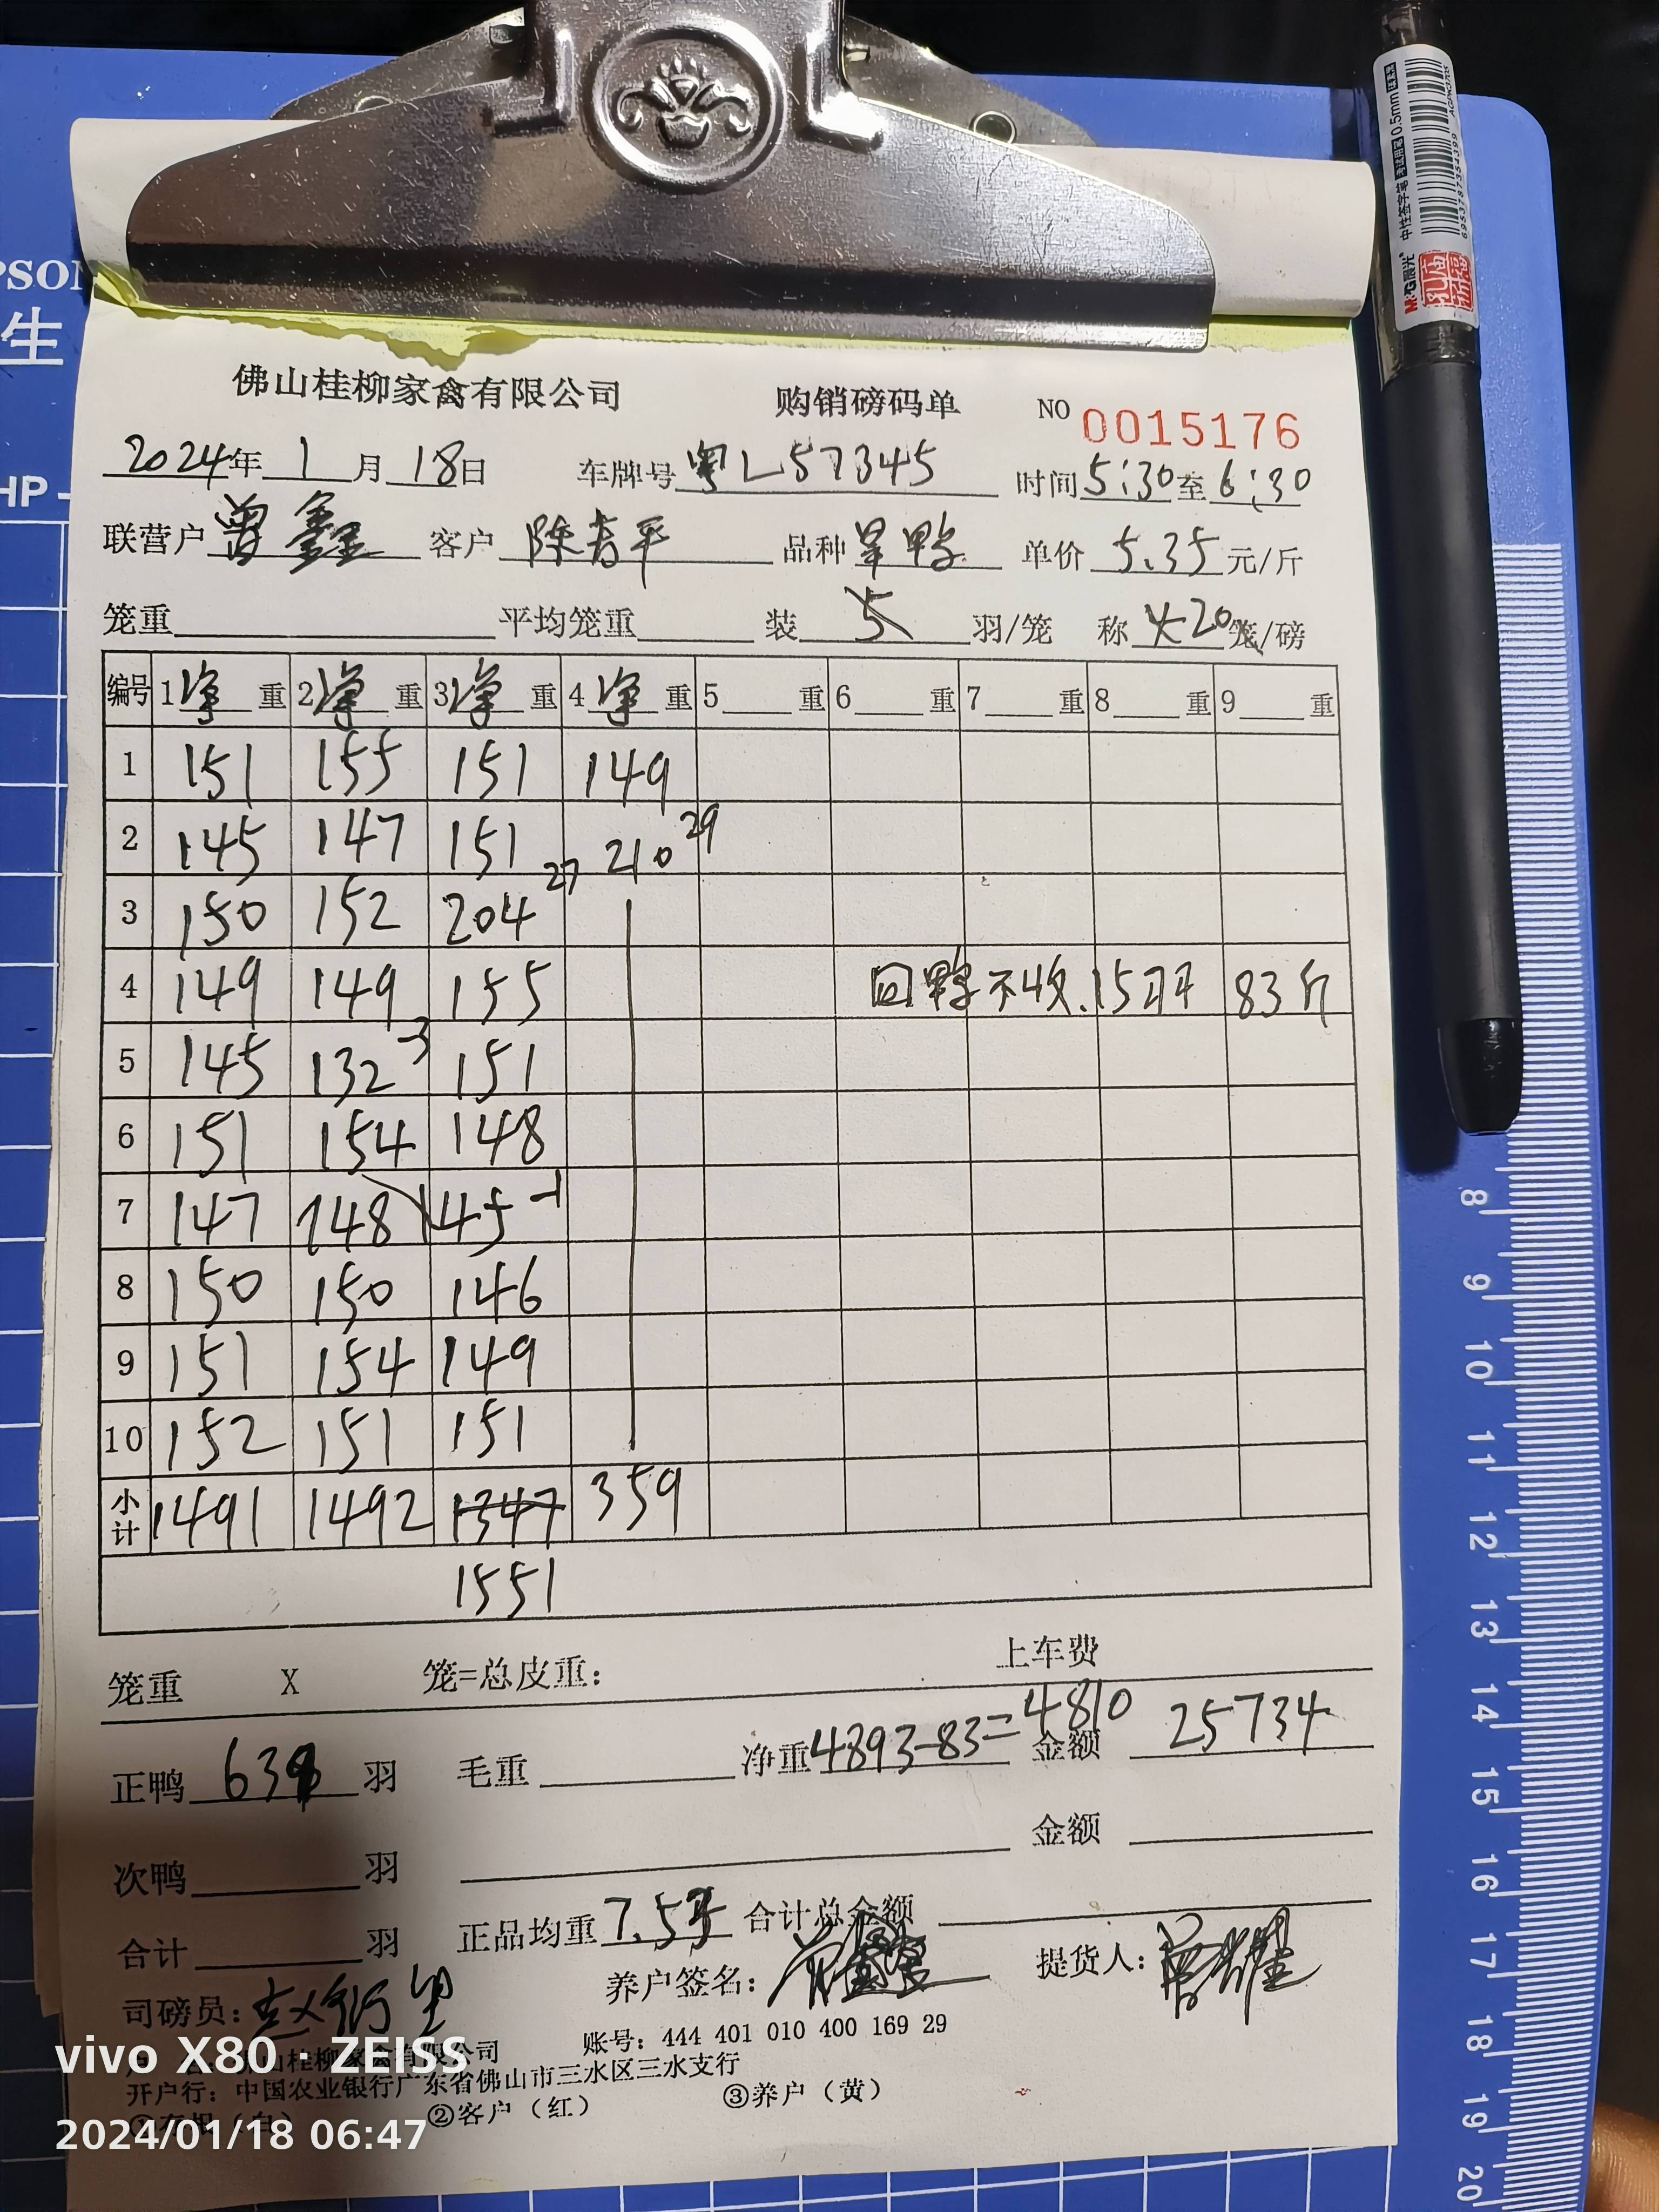 PSON
生
HP
中性签字笔 考试用笔 0.5mm
M&G晨光
孔庙祈福
佛山桂柳家禽有限公司 购销磅码单 NO 0015176
2024年1月18日 车牌号 粤L57345 时间5:30至6:30
联营户 曾鑫 客户 陈 平 品种 旱鸭 单价 5.35 元/斤
笼重 平均笼重 装 5 羽/笼 称 20 笼/磅
编号 1净重 2净重 3净重 4净重 5 重 6 重 7 重 8 重 9 重
1 151 155 151 149
2 145 147 151 210 29
3 150 152 204 27
4 149 149 155 回鸭不收.15羽 83斤
5 145 132 -3 151
6 151 154 148
7 147 148 145 -1
8 150 150 146
9 151 154 149
10 152 151 151
小计 1491 1492 1347 359
1551
笼重 X 笼=总皮重: 上车费
正鸭 羽 毛重 净重4893-83=4810 金额 25734
次鸭 羽 金额
合计 羽 正品均重 7.5 合计总金额
司磅员: 赵 养户签名: 曾鑫 提货人: 曾耀
山桂柳家禽有限公司 账号: 444 401 010 400 169 29
开户行: 中国农业银行广东省佛山市三水区三水支行
①存根（白） ②客户（红） ③养户（黄）
vivo X80 · ZEISS
2024/01/18 06:47
8
9
10
11
12
13
14
15
16
17
18
19
20